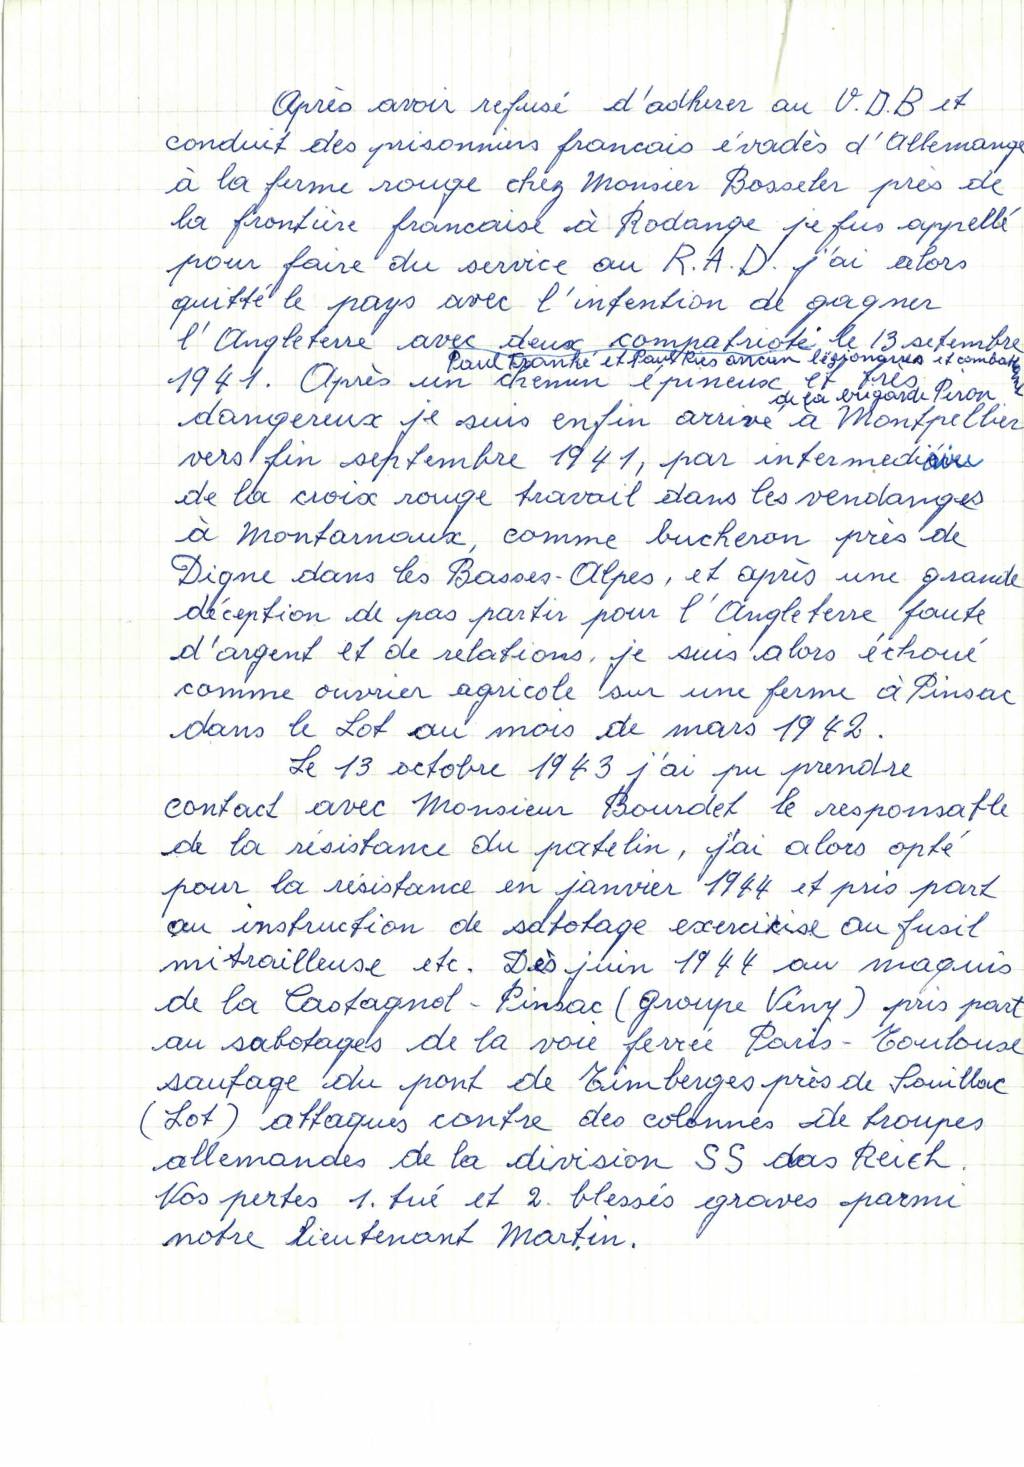 Après avoir refusé d'adherer au V.D.B et
conduit des prisonniers francais évadès d'Allemange
à la ferme rouge chez Monsier Bosseler près de
la frontière francaise à Rodange je fus appellé
pour faire du service au R.A.D. j'ai alors
quitté le pays avec l'intention de gagner
l'Angleterre avec deux compatriote le 13 setembre
Paul Franké et Paul Ries ancien légionaires et combattant
de la brigade Piron
1941. Après un chemin épineux et très
dangereux je suis enfin arrivé à Montpellier
vers fin septembre 1941, par intermediaire
de la croix rouge travail dans les vendanges
à Montarnaux, comme bucheron près de
Digne dans les Basses-Alpes, et après une grande
déception de pas partir pour l'Angleterre faute
d'argent et de relations, je suis alors échoué
comme ouvrier agricole sur une ferme à Pinsac
dans le Lot au mois de mars 1942.
Le 13 octobre 1943 j'ai pu prendre
contact avec Monsieur Bourdet le responsable
de la résistance du patelin, j'ai alors opté
pour la résistance en janvier 1944 et pris part
au instruction de sabotage exercixise au fusil
mitrailleuse etc. Dès juin 1944 au maquis
de la Castagnol - Pinsac (Groupe Viny) pris part
au sabotages de la voie ferrée Paris - Toulouse
sautage du pont de Timberges près de Souillac
(Lot) attaques contre des colonnes de troupes
allemandes de la division SS das Reich.
Nos pertes 1. tué et 2. blessés graves parmi
notre lieutenant Martin.